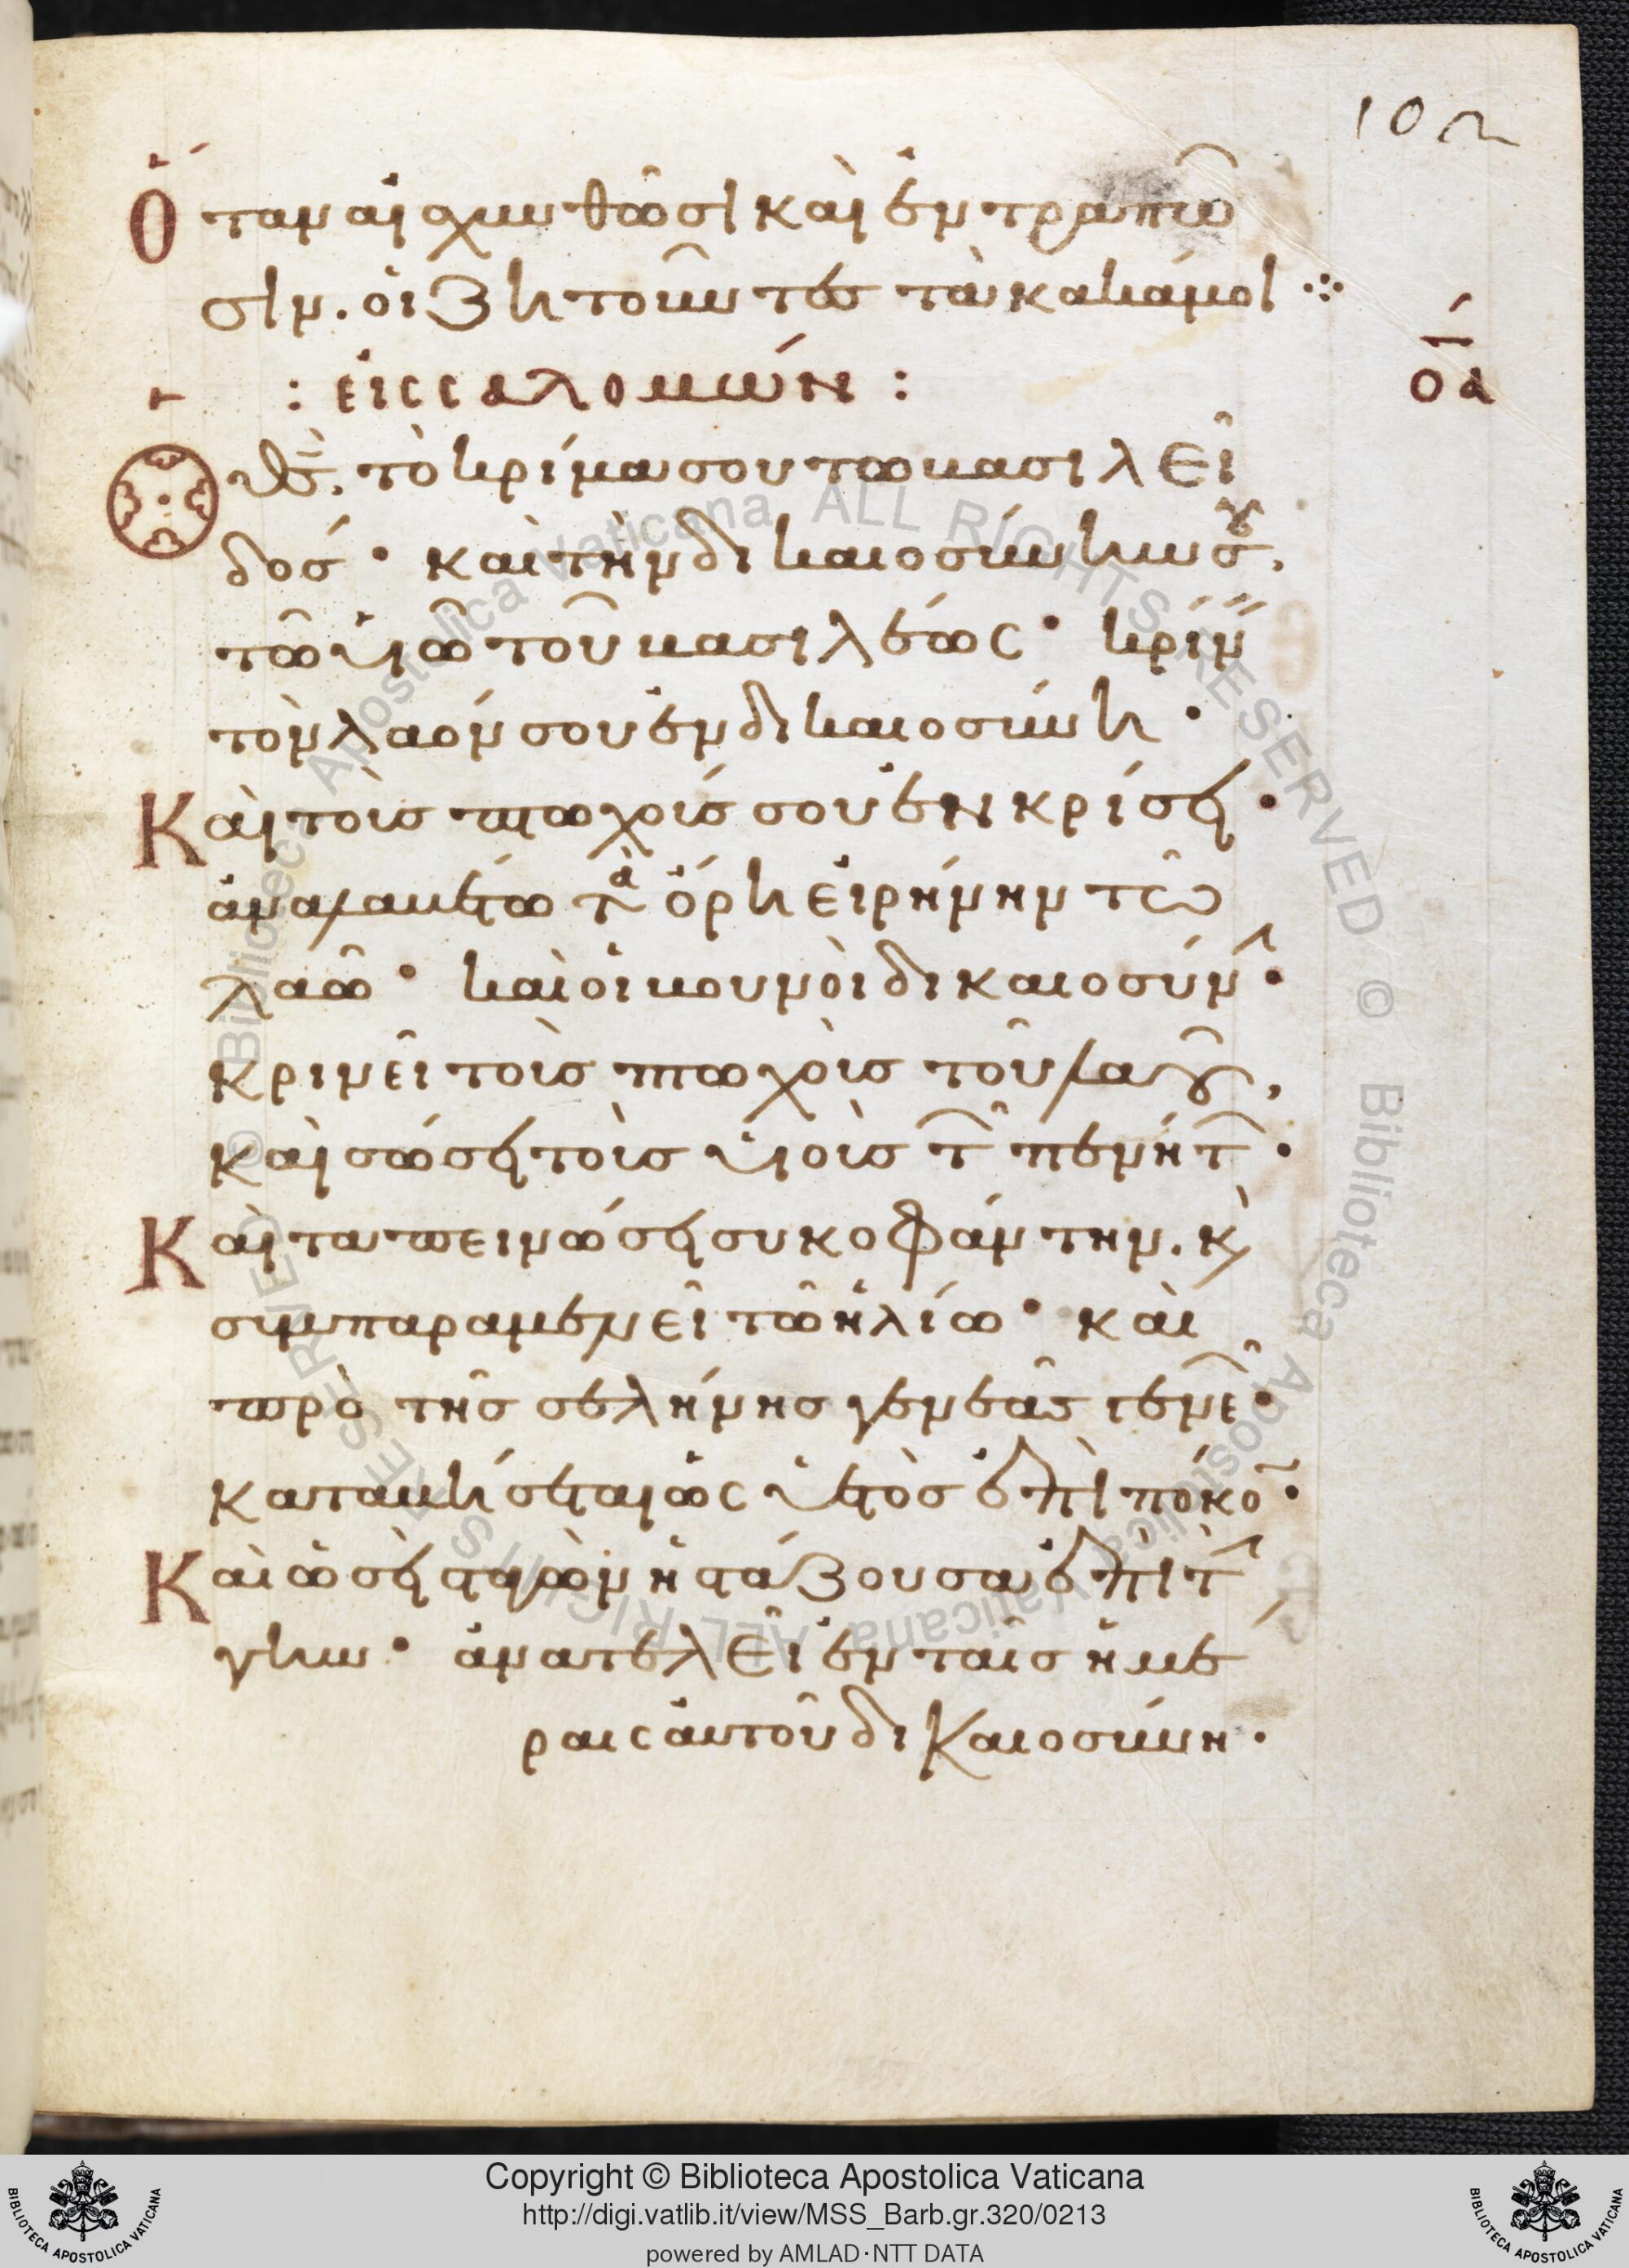 102
Ὅταν αἰσχυνθῶσι καὶ ἐντραπῶ
σιν. οἱ ζητοῦντες τὰ κακά μοι ⁘
: εἰς σαλομών :
οα
Ὁ θς̅. τὸ κρίμα σου τῶ βασιλεῖ
δός · καὶ τὴν δικαιοσύνην σου.
τῶ υἱῶ τοῦ βασιλέως · κρίν
τὸν λαόν σου ἐν δικαιοσύνη ·
Καὶ τοὺς πτωχούς σου ἐν κρίσει ·
ἀναλαβέτω τὰ ὄρη εἰρήνην τῶ
λαῶ · καὶ οἱ βουνοὶ δικαιοσύν ·
κρινεῖ τοὺς πτωχοὺς τοῦ λαοῦ,
καὶ σώσει τοὺς υἱοὺς τ πενήτ ·
Καὶ ταπεινώσει συκοφάντην. κ
συμπαραμενεῖ τῶ ἡλίω · καὶ
πρὸ τῆς σελήνης γενεᾶς γενε ·
καταβήσεται ὡς ὑετὸς ἐπὶ πόκο ·
Καὶ ὡσεὶ σταγὼν ἡ στάζουσα ἐπὶ τ
γῆν · ἀνατελεῖ ἐν ταῖς ἡμέ
ραις αὐτοῦ δικαιοσύνη ·
© Biblioteca Apostolica Vaticana ALL RIGHTS RESERVED © Biblioteca Apostolica Vaticana ALL RIGHTS RESERVED
Copyright © Biblioteca Apostolica Vaticana
http://digi.vatlib.it/view/MSS_Barb.gr.320/0213
powered by AMLAD·NTT DATA
BIBLIOTECA APOSTOLICA VATICANA
BIBLIOTECA APOSTOLICA VATICANA